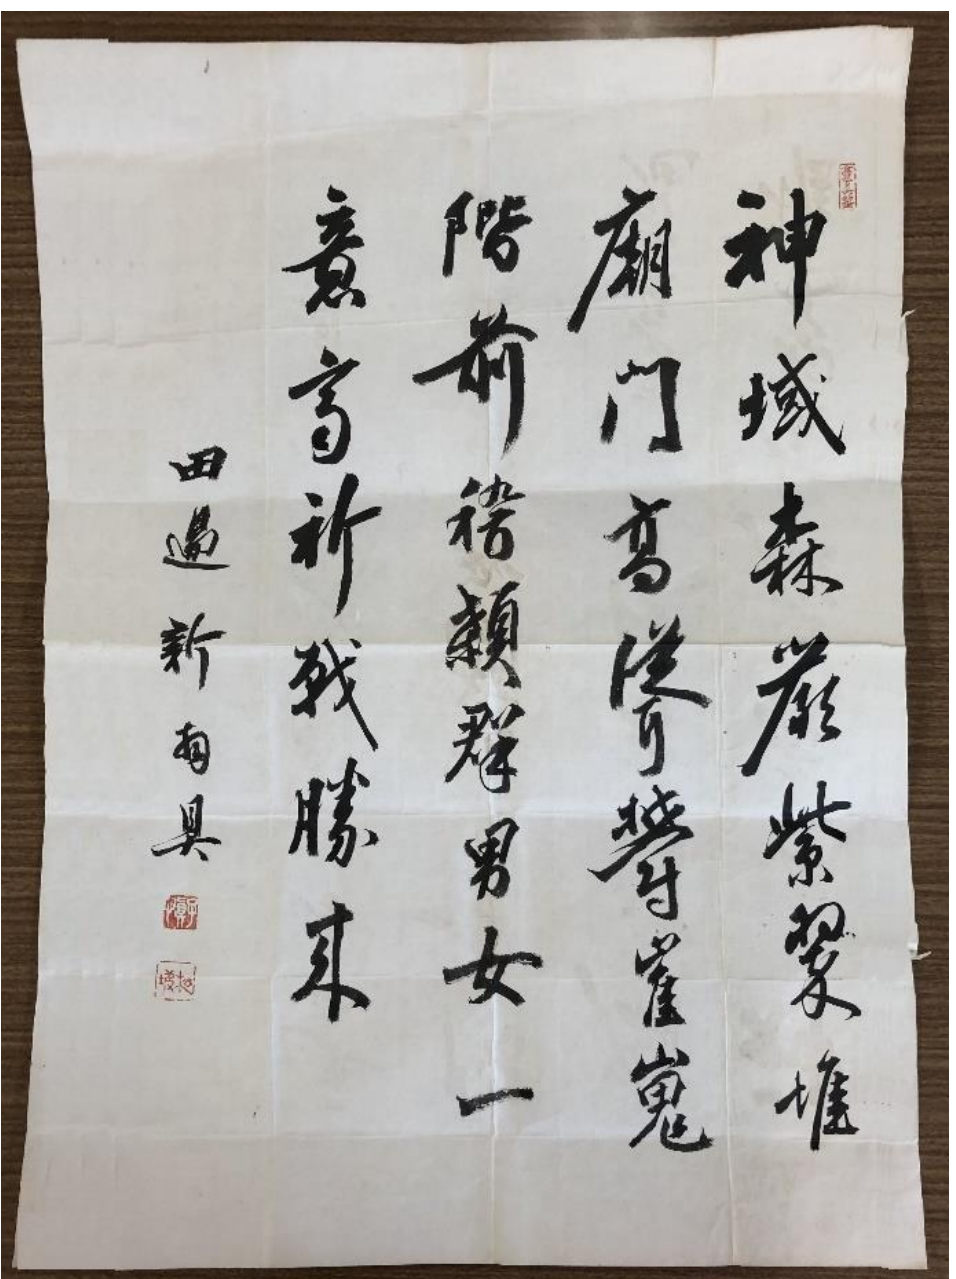 神域森厳紫翠堆
廟門高聳欝崔嵬
階前稽顙群男女一
意高祈戦勝来
田邊新具